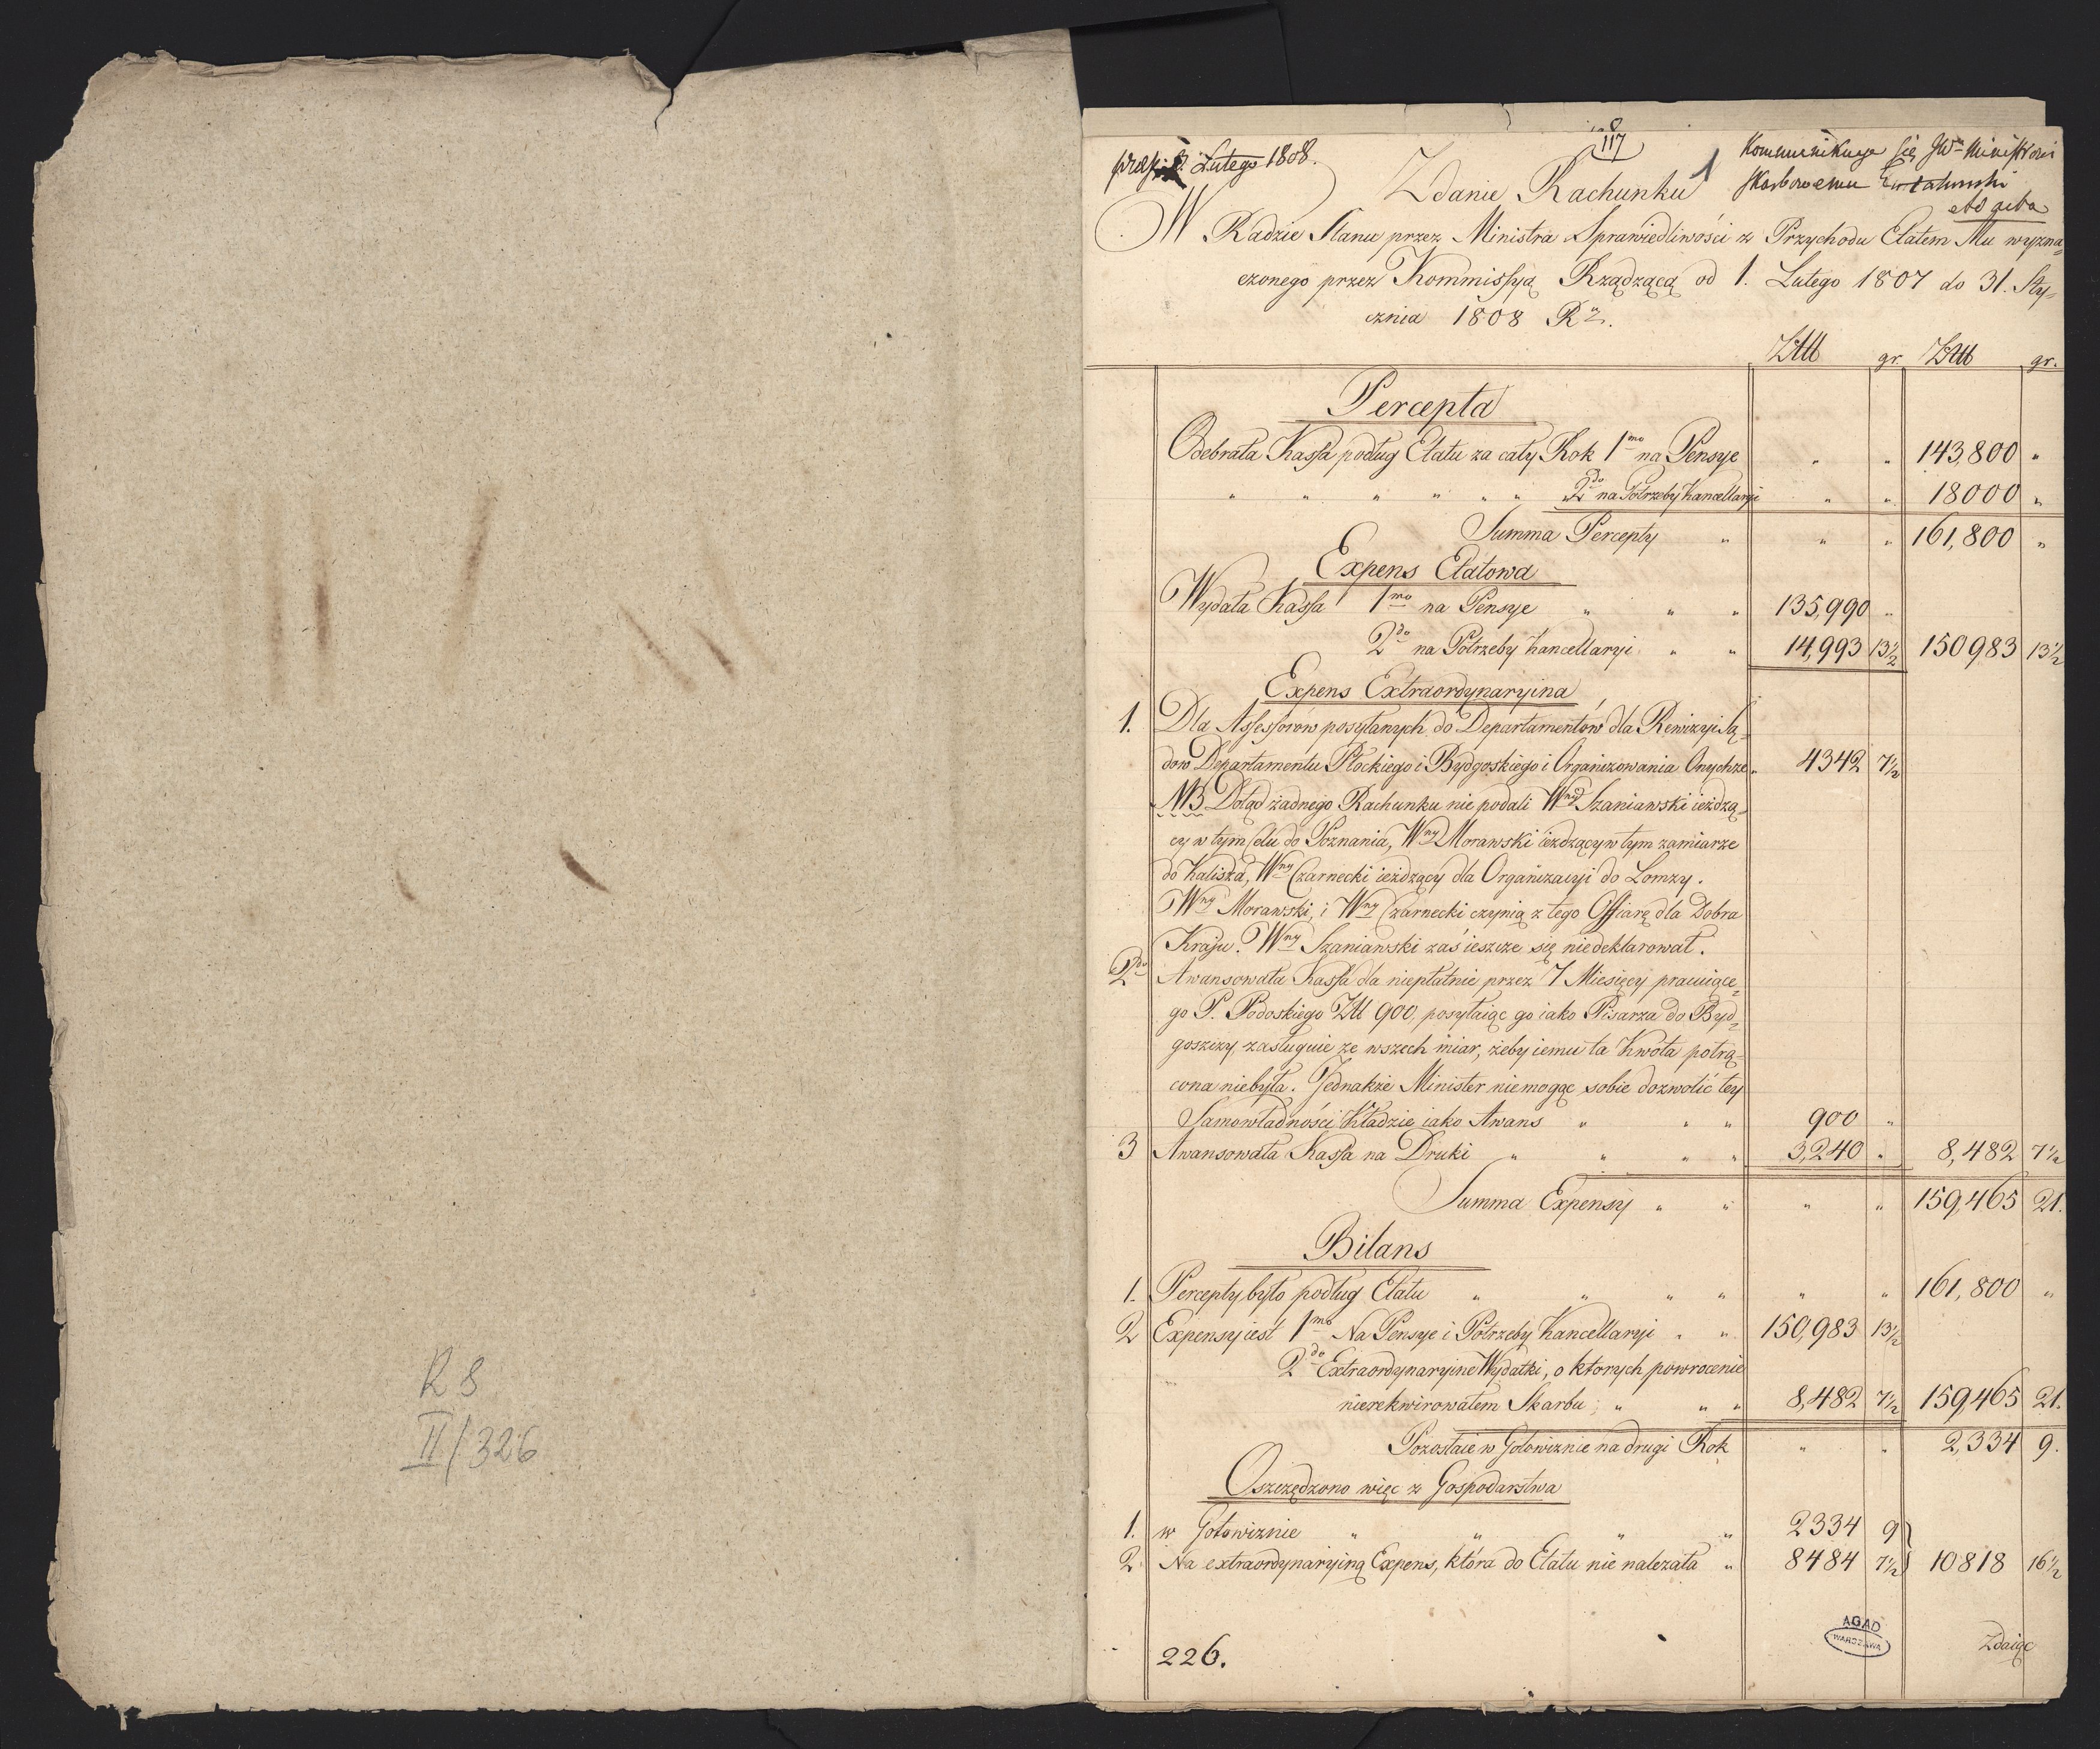 R 8
II/326
8
117
1
praes. 8. Lutego 1808.
Kommunikuje się JWu Ministrowi
Skarbowemu
Zdanie Rachunku
W Radzie Stanu przez Ministra Sprawiedliwości z Przychodu Etatem Mu wyzna=
czonego przez Kommissyą Rządzącą od 1. Lutego 1807 do 31. Sty=
cznia 1808 R.
Złtt gr. Złtt gr.
Percepta
Odebrała Kassa podług Etatu za cały Rok 1mo na Pensye " " 143,800 "
" " " " " " 2do na Potrzeby Kancellaryi " " 18000 "
Summa Percepty " " " 161,800 "
Expens Etatowa
Wydała Kassa 1mo na Pensye " " " 135,990 "
2do na Potrzeby Kancellaryi " " 14,993 13½ 150983 13½
Expens Extraordynaryina
1. Dla Assessorow posyłanych do Departamentów dla Rewizyi Są=
dow Departamentu Płockiego i Bydgoskiego i Organizowania Onychże " 4342 7½
NB Dotąd żadnego Rachunku nie podali Wny Szaniawski ieżdzą=
cy w tym Celu do Poznania, Wny Morawski ieżdzący w tym zamiarze
do Kalisza, Wny Czarnecki ieżdzący dla Organizacyi do Łomzy.
Wny Morawski, i Wny Czarnecki czynią z tego Offiarę dla Dobra
Kraju. Wny Szaniawski zaś ieszcze się niedeklarował.
2do Awansowała Kassa dla niepłatnie przez 7 Miesięcy pracuiące=
go P. Podoskiego Złł 900, posyłaiąc go iako Pisarza do Byd=
goszczy, zasługuie ze wszech miar, żeby iemu ta Kwota potrą=
cona niebyła. Jednakże Minister niemogąc sobie dozwolić tey
Samowładności kładzie iako Awans " " " 900 "
3 Awansowała Kassa na Druki " " " " 3,240 " 8,482 7½
Summa Expensy " " " " 159,465 21.
Bilans
1. Percepty było podług Etatu " " " " " " 161,800 "
2 Expensy iest 1mo Na Pensye i Potrzeby Kancellaryi " " 150,983 13½
2do Extraordynaryine Wydatki, o ktorych powrocenie
nierekwirowałem Skarbu " " " 8,482 7½ 159,465 21.
Pozostaie w Gotowiznie na drugi Rok " " 2,334 9.
Oszczędzono więc z Gospodarstwa
1. w Gotowiznie " " " " 2334 9
2. Na extraordynaryiną Expens, która do Etatu nie należała " 8484 7½ 10818 16½
226.
AGAD
WARSZAWA
Zdaiąc